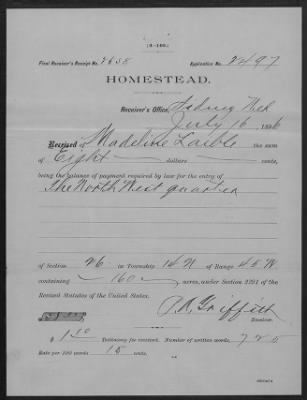 [4-140.]
Final Receiver's Receipt No. 2658 Application No. 2497
HOMESTEAD.
Receiver's Office, Sidney Neb
July 16, 1886
Received of Madeline Laible the sum
of Eight dollars cents,
being the balance of payment required by law for the entry of
The North West quarter
of Section 26 in Township 14 N of Range 45 W
containing 160 acres, under Section 2291 of the
Revised Statutes of the United States.
Receiver.
Testimony fee received. Number of written words, 725
Rate per 100 words 15 cents.